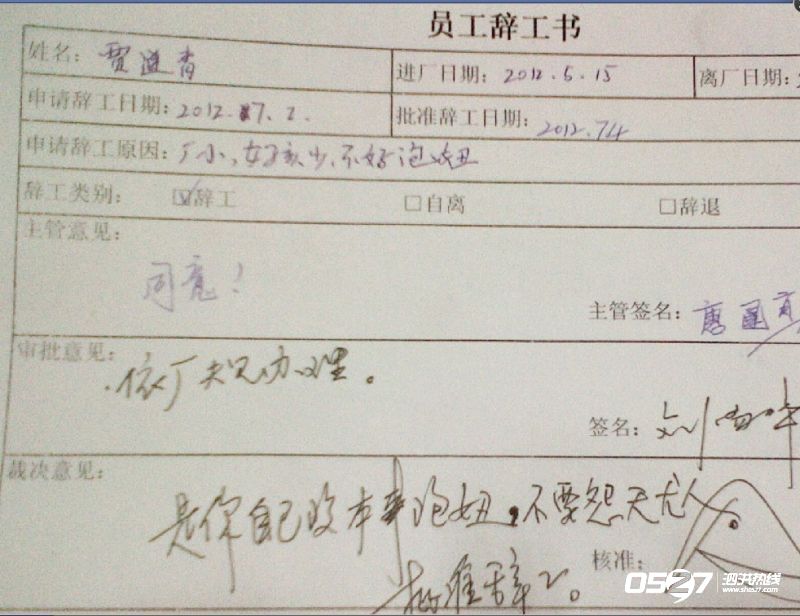 员工辞工书
姓名：贾莲青 进厂日期：2012.5.15 离厂日期：
申请辞工日期：2012.7.2. 批准辞工日期：2012.7.4
申请辞工原因：厂小，女孩少，不好泡妞
辞工类别： ☑辞工 □自离 □辞退
主管意见：
同意！
主管签名：唐国
审批意见：
依厂规办理。
签名：刘
裁决意见：
是你自己没本事泡妞，不要怨天尤人。
核准：
批准辞工。
0527 泗洪热线
www.sh0527.com